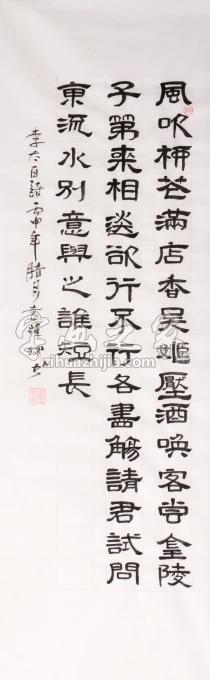 風吹柳花滿店香吳姬壓酒喚客嘗金陵
子弟來相送欲行不行各盡觴請君試問
東流水別意與之誰短長
李太白詩丙申年
字画之家
zihuazhijia.com